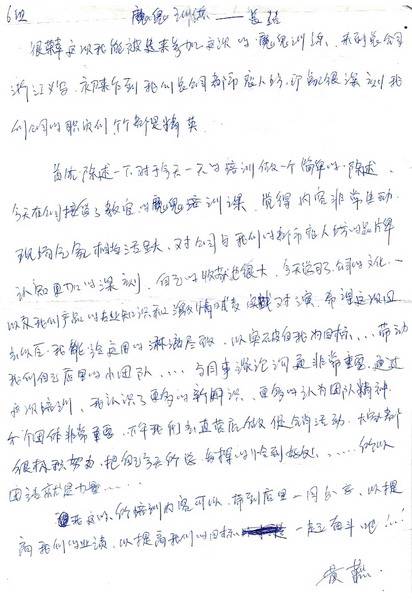 6组 魔鬼训练——黄燕
很荣幸这次我能被选来参加这次的魔鬼训练，来到总公司
浙江义乌，初来乍到我们总公司都市丽人坊，印象很深刻我
们公司的职员们个个都是精英
首先陈述一下对于今天一天的培训做一个简单的陈述，
今天在们接受了教官的魔鬼培训课，觉得内容非常生动
现场气氛相当活跃，对公司与我们的都市丽人坊的品牌
认知更加的深刻，自己的收获也很大，今天学习了公司的文化
以及我们产品的专业知识和激情对演，希望这次回
去以后我能够运用的淋漓尽致，以突破自我为目标....带动
我们自己店里的小团队....与同事谈论沟通非常重要，通过
这次培训，我认识了更多的新朋识，更多的认为团队精神
个团体非常重要，下午我们去直营店做促销活动，大家都
很积极努力，把自己今天所学，发挥的淋到好处......所以
团结就是力量.....
我这次所培训内容可以带到店里一同分享，以提
高我们的业绩，以提高我们的目标 一起奋斗吧！..！
黄燕